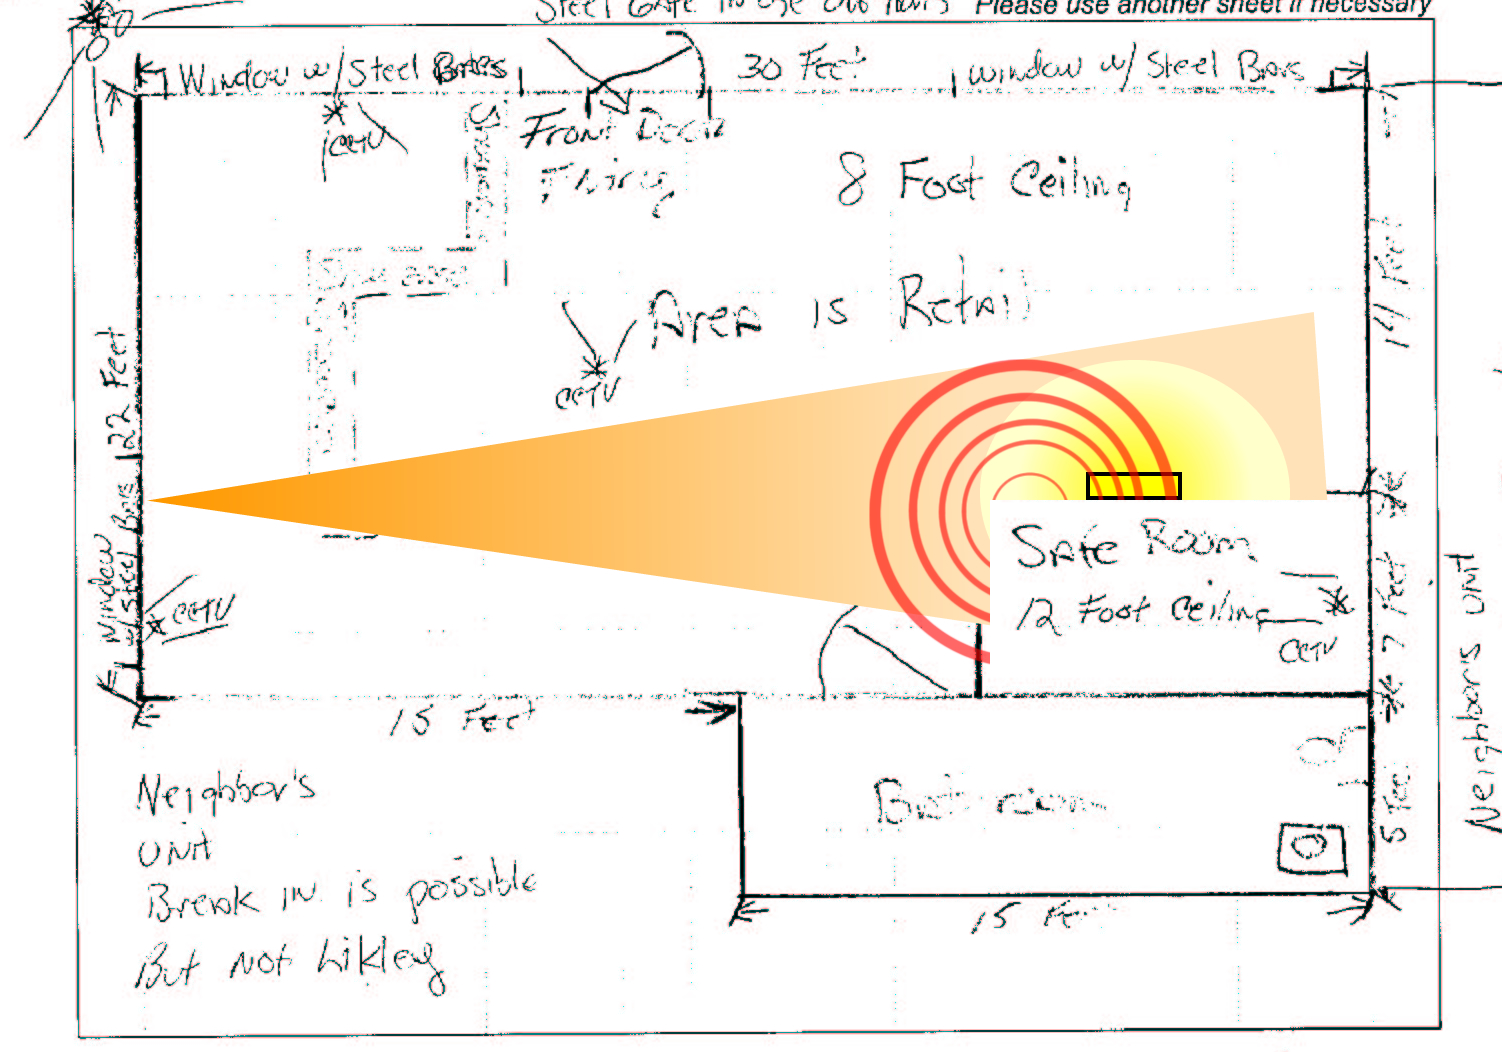 Steel Gate in use Please use another sheet if necessary
Window w/ Steel Bars
30 Feet
window w/ Steel Bars
CCTV
Front Door
Facing
8 Foot Ceiling
Show case
Area is Retail
14 Feet
22 Feet
CCTV
Window
w/ Steel Bars
CCTV
Safe Room
12 Foot Ceiling
CCTV
7 Feet
Neighbors Unit
15 Feet
Neighbor's
Unit
Break in is possible
But not Likley
Bathroom
5 Feet
15 Feet